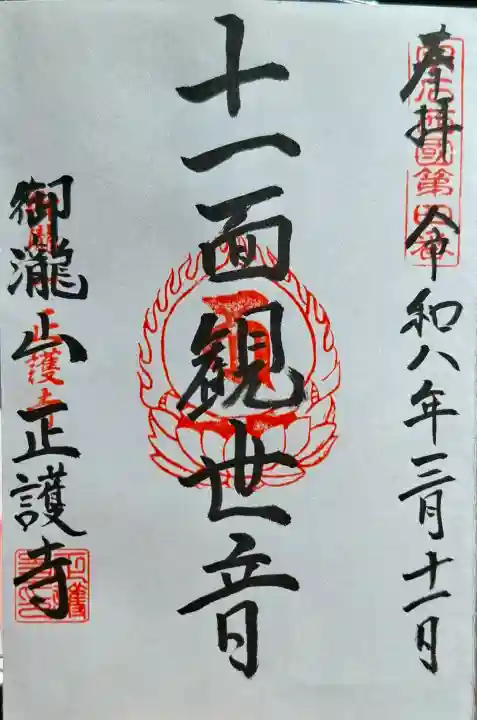 奉拝
令和八年三月十一日
十一面観世音
御瀧山正護寺